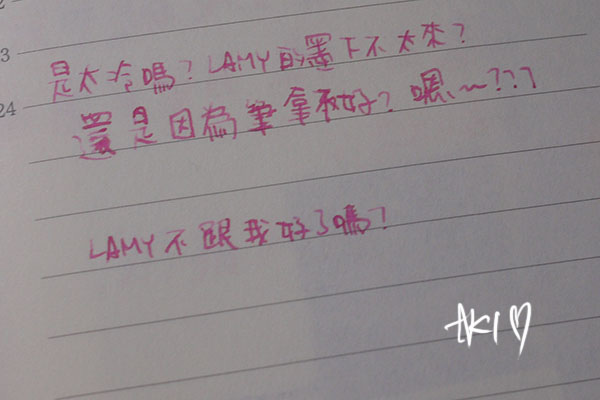 3
是太冷嗎?LAMY的墨下不太來?
24
還是因為筆拿不好?嗯~???
LAMY不跟我好了嗎?
AKI♡